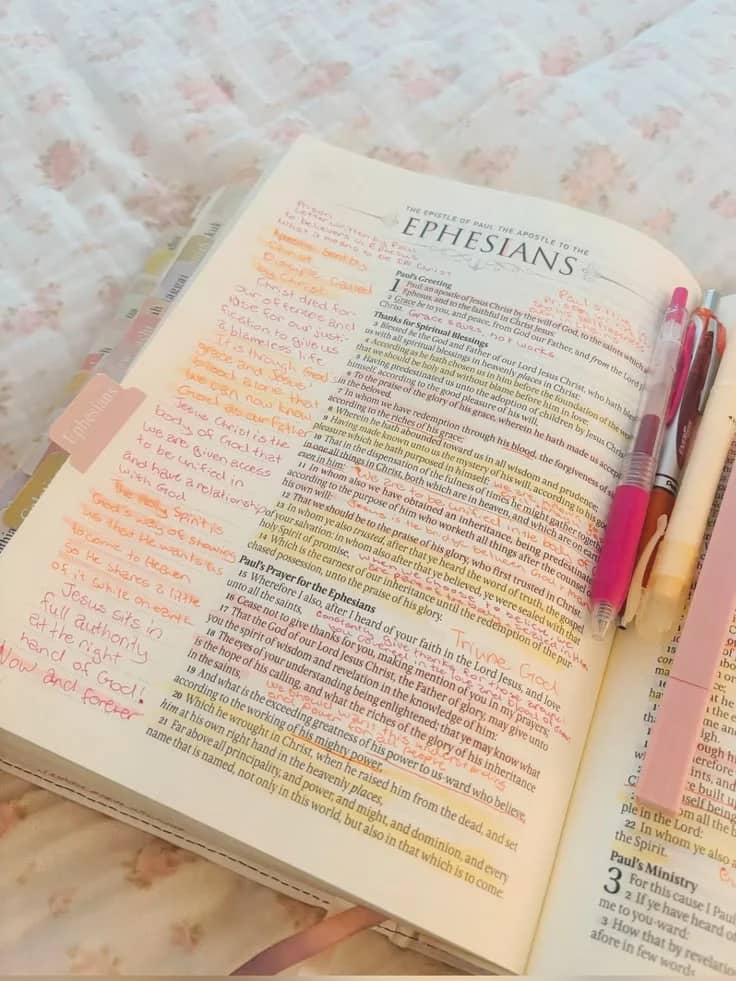 THE EPISTLE OF PAUL THE APOSTLE TO THE
EPHESIANS
Prison
Letter written by Paul
to believers in Ephesus
What it means to be in Christ
Apostle: Sent by
Christ
Disciple: Called
by Christ
Christ died for
our offenses and
rose for our justi-
fication to give us
a blameless life
It is through God's
grace and Jesus'
blood alone that
we can now know
God as our Father
Jesus Christ is the
body of God that
we are given access
to be unified in
and have a relationship
with God
The Holy Spirit is
God's way of showing
us that He wants us
to come to Heaven
so He shares a little
of it while on earth
Jesus sits in
full authority
at the right
hand of God!
Now and forever
Ephesians
Paul's Greeting
1 Paul, an apostle of Jesus Christ by the will of God, to the saints which
Ephesus, and to the faithful in Christ Jesus:
2 Grace be to you, and peace, from God our Father, and from the Lord
Christ. Grace saves, not works
Thanks for Spiritual Blessings
3 Blessed be the God and Father of our Lord Jesus Christ, who hath
us with all spiritual blessings in heavenly places in Christ:
4 According as he hath chosen us in him before the foundation of the
that we should be holy and without blame before him in love:
5 Having predestinated us unto the adoption of children by Jesus Christ
himself, according to the good pleasure of his will,
6 To the praise of the glory of his grace, wherein he hath made us accep
in the beloved.
7 In whom we have redemption through his blood, the forgiveness of
according to the riches of his grace;
8 Wherein he hath abounded toward us in all wisdom and prudence;
9 Having made known unto us the mystery of his will, according to his
pleasure which he hath purposed in himself:
10 That in the dispensation of the fulness of times he might gather together
in one all things in Christ, both which are in heaven, and which are on earth
even in him: We are to be unified in the body of
11 In whom also we have obtained an inheritance, being predestinated
according to the purpose of him who worketh all things after the counsel of
his own will: Jesus is the bridge between God
12 That we should be to the praise of his glory, who first trusted in Christ.
13 In whom ye also trusted, after that ye heard the word of truth, the gospel
of your salvation: in whom also after that ye believed, ye were sealed with that
holy Spirit of promise,
14 Which is the earnest of our inheritance until the redemption of the pur-
chased possession, unto the praise of his glory.
Paul's Prayer for the Ephesians
15 Wherefore I also, after I heard of your faith in the Lord Jesus, and love
unto all the saints, Triune God
16 Cease not to give thanks for you, making mention of you in my prayers;
17 That the God of our Lord Jesus Christ, the Father of glory, may give unto
you the spirit of wisdom and revelation in the knowledge of him:
18 The eyes of your understanding being enlightened; that ye may know what
is the hope of his calling, and what the riches of the glory of his inheritance
in the saints,
19 And what is the exceeding greatness of his power to us-ward who believe,
according to the working of his mighty power,
20 Which he wrought in Christ, when he raised him from the dead, and set
him at his own right hand in the heavenly places,
21 Far above all principality, and power, and might, and dominion, and every
name that is named, not only in this world, but also in that which is to come:
ple in the Lord:
22 In whom ye also a
the Spirit.
Paul's Ministry
3 For this cause I Paul
2 If ye have heard of
me to you-ward:
3 How that by revelation
afore in few words